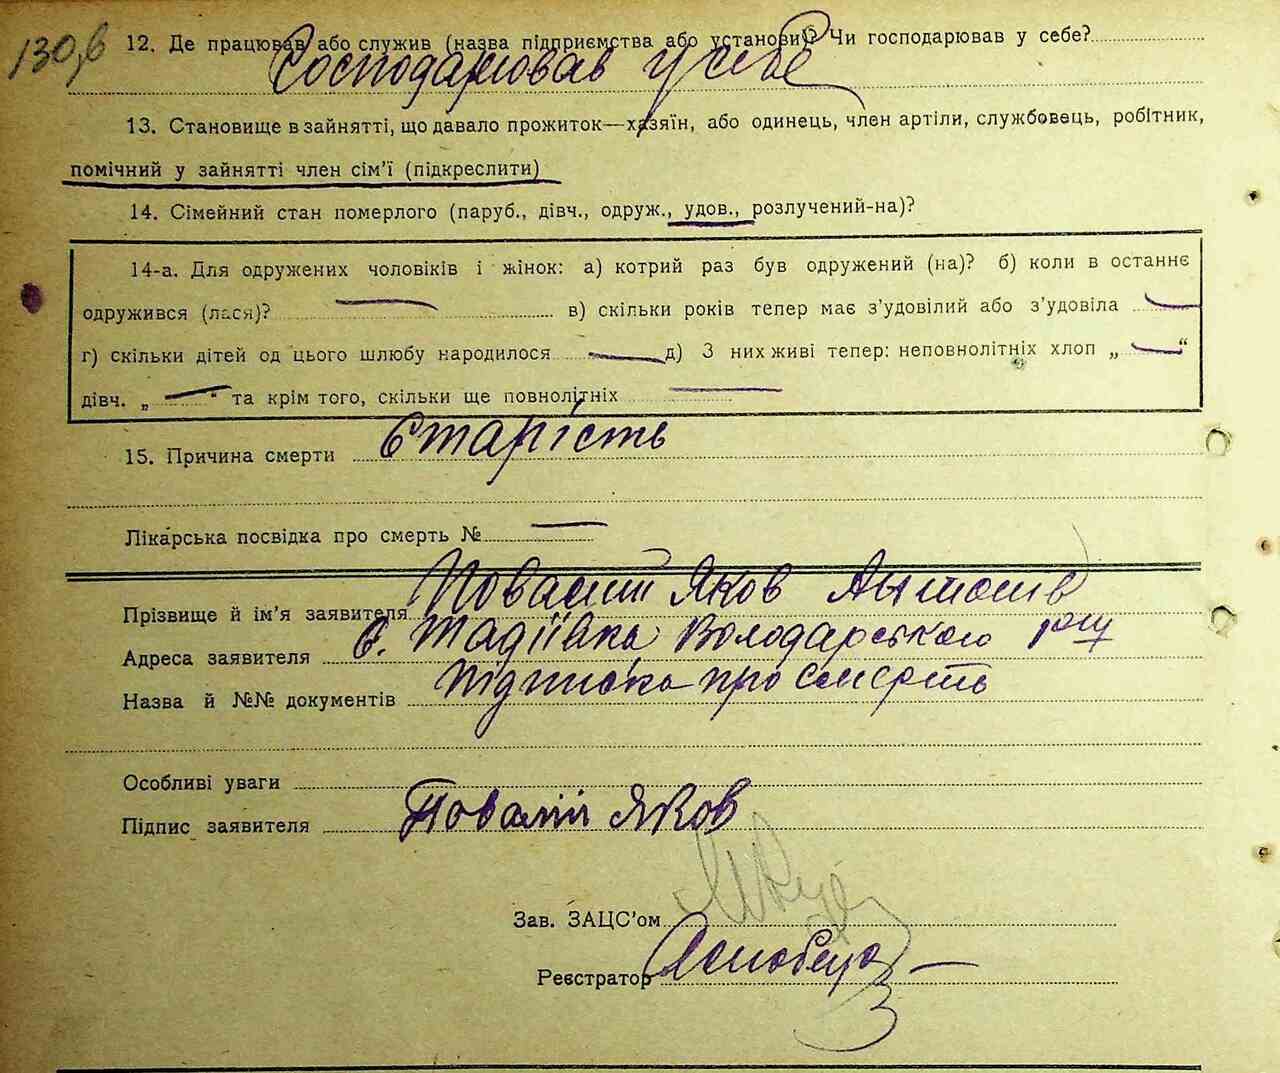 130,б
12. Де працював або служив (назва підприємства або установи)? Чи господарював у себе?
Господарював у себе
13. Становище в зайнятті, що давало прожиток—хазяїн, або одинець, член артіли, службовець, робітник,
помічний у зайнятті член сім'ї (підкреслити)
14. Сімейний стан померлого (паруб., дівч., одруж., удов., розлучений-на)?
14-а. Для одружених чоловіків і жінок: а) котрий раз був одружений (на)? б) коли в останнє
одружився (лася)? — в) скільки років тепер має з'удовілий або з'удовіла —
г) скільки дітей од цього шлюбу народилося — д) З них живі тепер: неповнолітніх хлоп „ — “
дівч. „ — “ та крім того, скільки ще повнолітніх —
15. Причина смерти Старість
Лікарська посвідка про смерть № —
Прізвище й ім'я заявителя Повалій Яков Антонів
Адреса заявителя с. Тадіївка Володарського р-ну
Назва й №№ документів Підписка про смерть
Особливі уваги
Підпис заявителя Повалій Яков
Зав. ЗАЦС'ом
Реєстратор